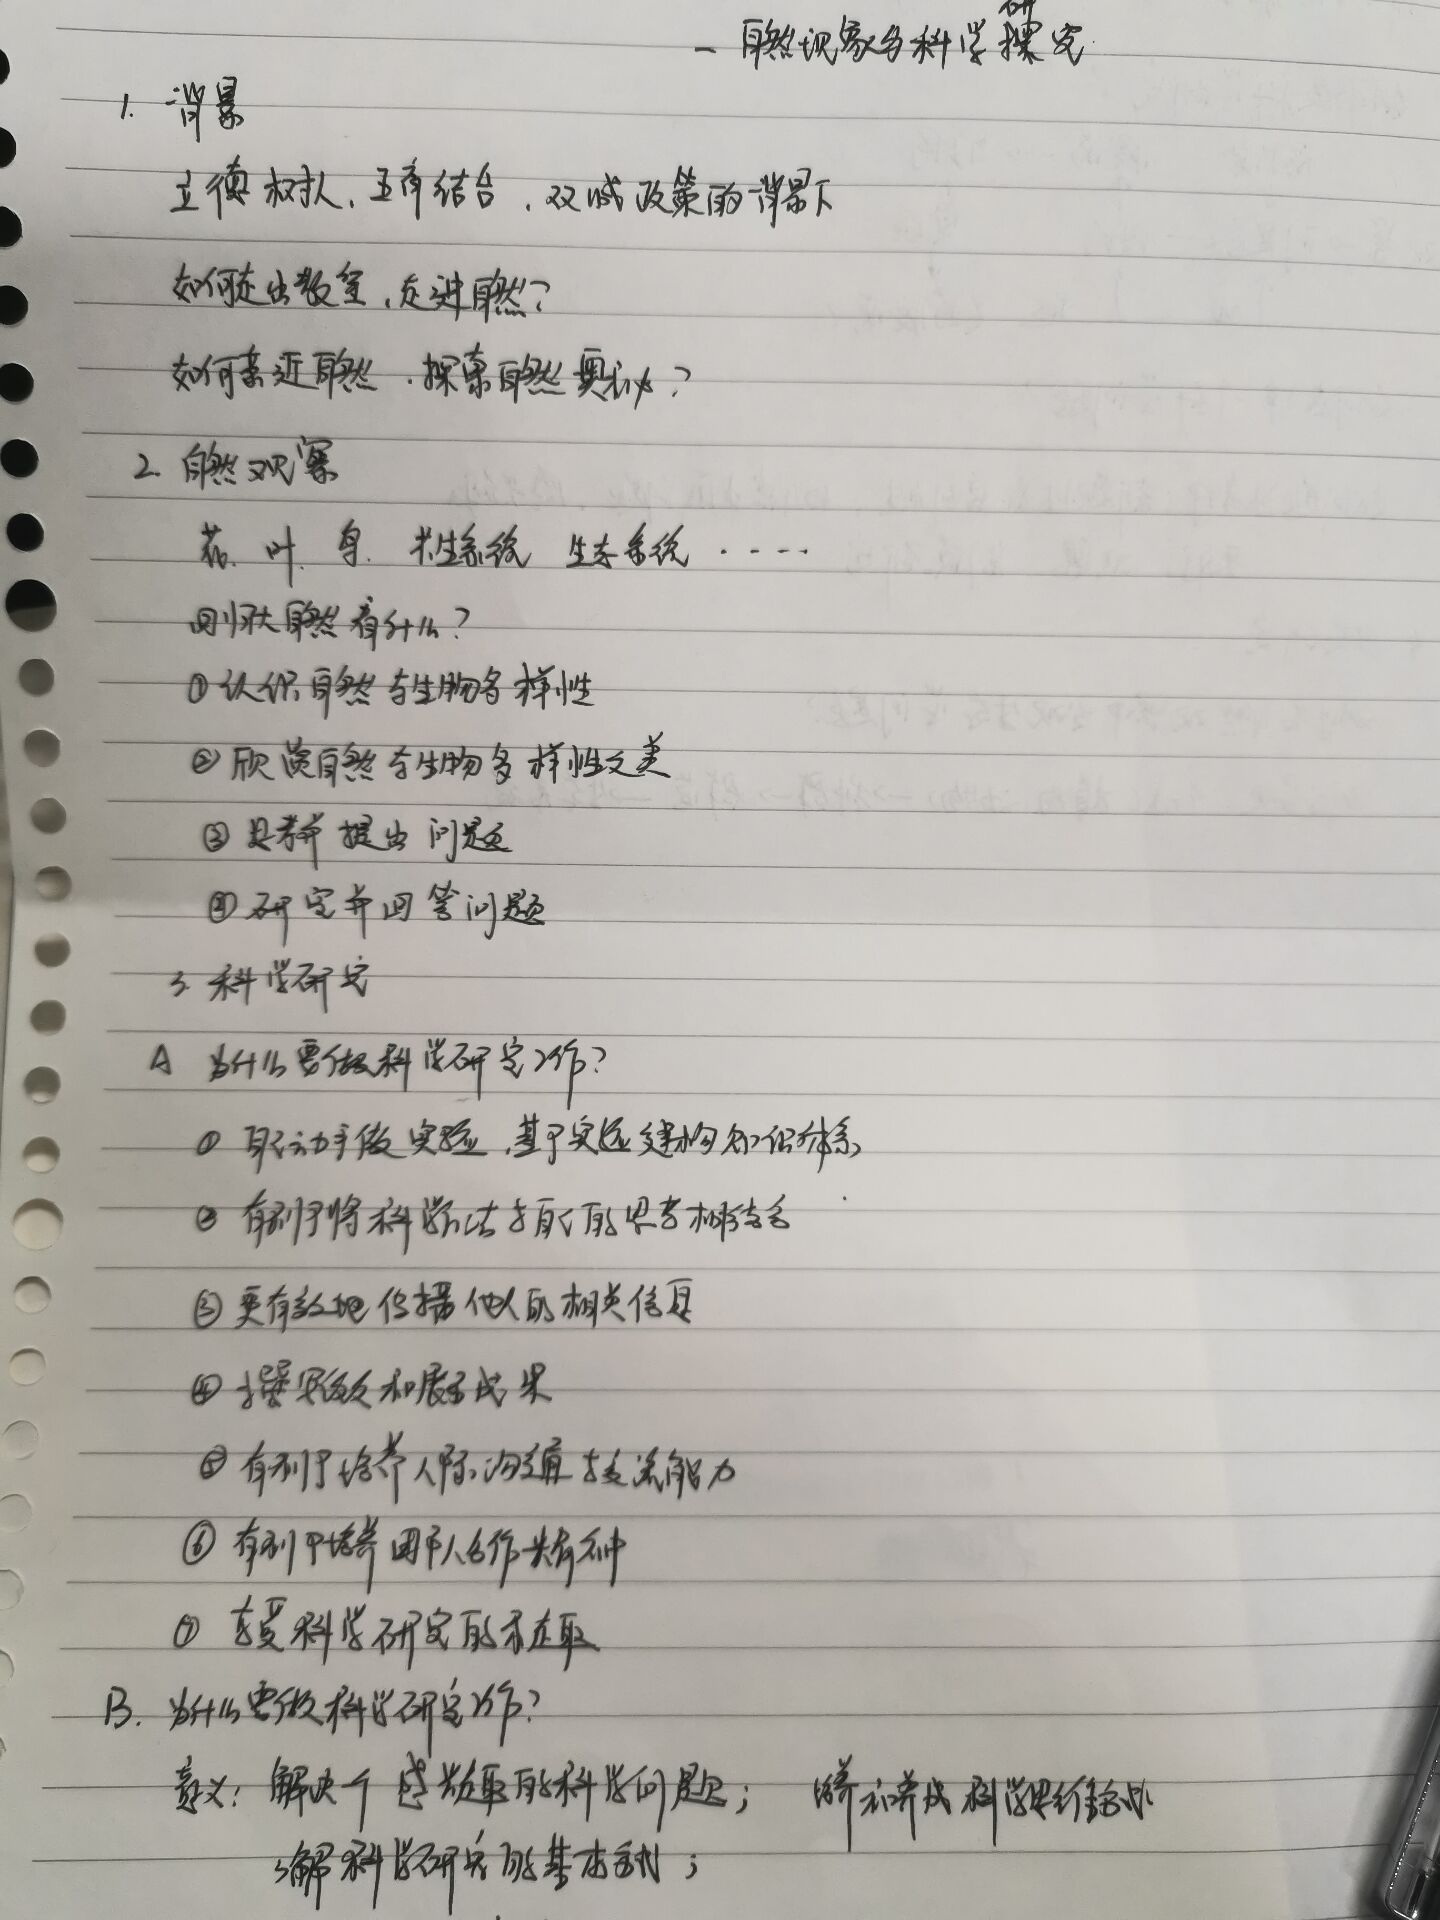 一 自然现象与科学探究
研
1. 背景
立德树人、五育结合、双减政策的背景下
如何走出教室、走进自然?
如何亲近自然、探索自然奥秘?
2. 自然观察
花、叶、鸟、 生态系统 ····
回归大自然看什么?
① 认识自然与生物多样性
② 欣赏自然与生物多样性之美
③ 思考并提出问题
④ 研究并回答问题
3. 科学研究
A 为什么要做科学研究工作?
① 自己动手做实验,基于实验建构知识体系
② 有利于将科学方法与自己的思考相结合
③ 更有效地传播他人的相关信息
④ 撰写论文和展示成果
⑤ 有利于培养人际沟通与交流能力
⑥ 有利于培养团队合作共有精神
⑦ 享受科学研究的乐趣
B. 为什么要做科学研究工作?
意义: 解决一个感兴趣的科学问题; 培养和养成科学思维
了解科学研究的基本;